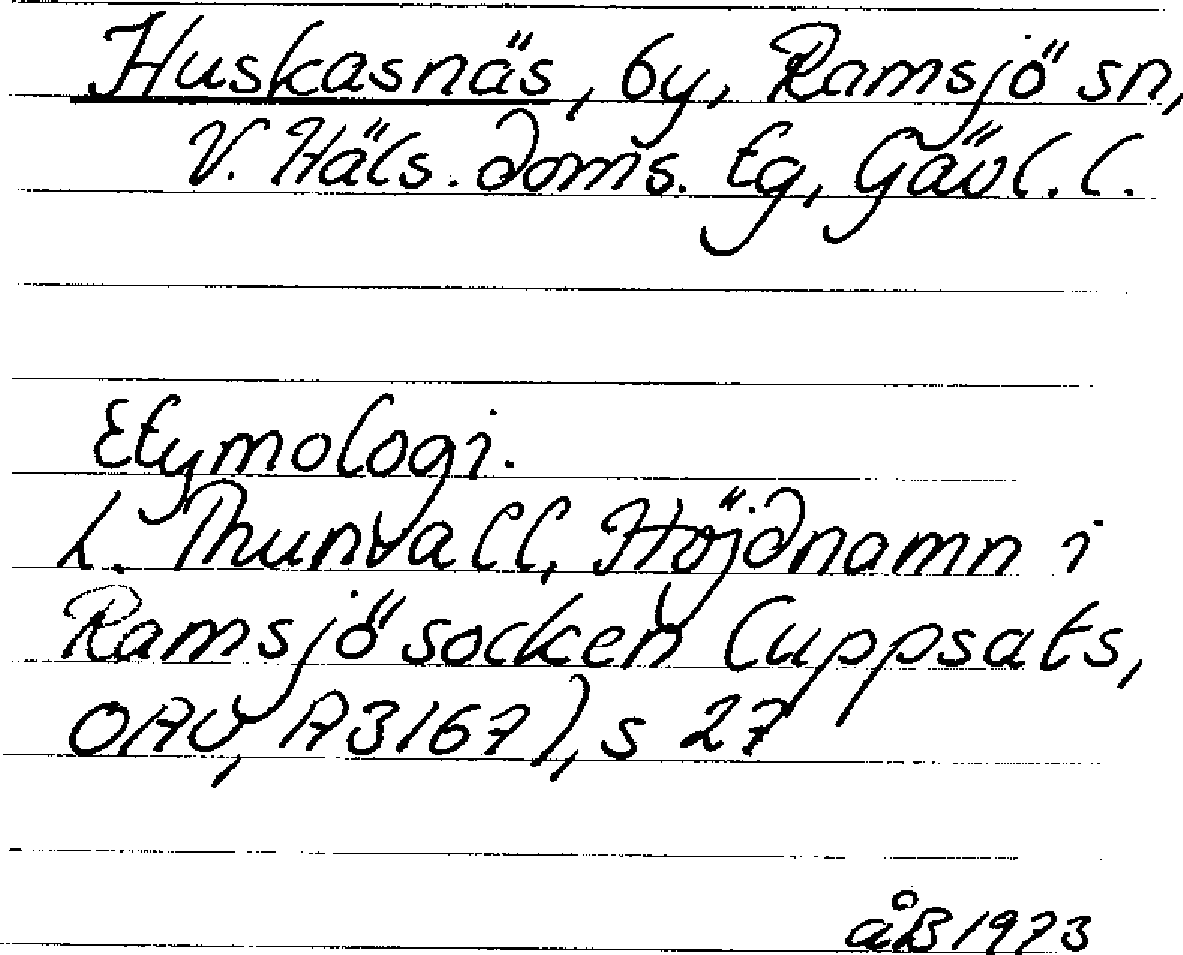 Huskasnäs, by, Ramsjö sn,
V. Häls. doms. tg, Gävl. l.
Etymologi.
L. Thunvall, Höjdnamn i
Ramsjö socken (uppsats,
OAU, A3167), s 27
åB 1973